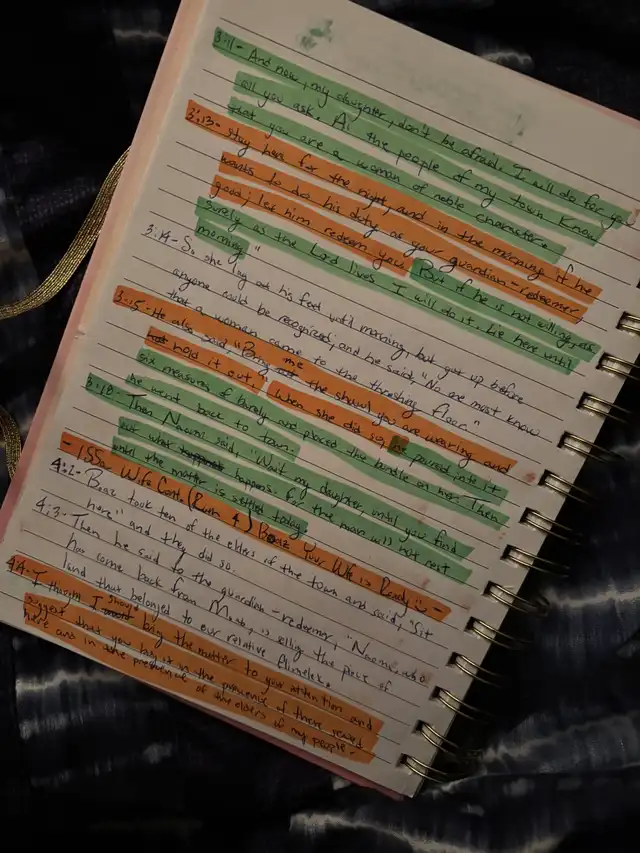 3:11- And now, my daughter, don't be afraid. I will do for you
all you ask. All the people of my town know
that you are a woman of noble character.
3:13- Stay here for the night, and in the morning if he
wants to do his duty as your guardian-redeemer
good; let him redeem you. But if he is not willing, as
surely as the Lord lives I will do it. Lie here until
morning."
3:14- So she lay at his feet until morning, but got up before
anyone could be recognized; and he said, "No one must know
that a woman came to the threshing floor."
3:15- He also said, "Bring me the shawl you are wearing and
hold it out. When she did so, he poured into it
six measures of barely and placed the bundle on her. Then
he went back to town.
3:18- Then Naomi said, "Wait my daughter until you find
out what happens. For the man will not rest
until the matter is settled today.
- Wife (Ruth 4) Boaz Your Wife is Ready :) -
4:2- Boaz took ten of the elders of the town and said, "Sit
here" and they did so.
4:3- Then he said to the guardian-redeemer, "Naomi, who
has come back from Moab, is selling the piece of
land that belonged to our relative Elimelek.
4:4- I thought I should bring the matter to your attention and
suggest that you buy it in the presence of these seated
here and in the presence of the elders of my people.